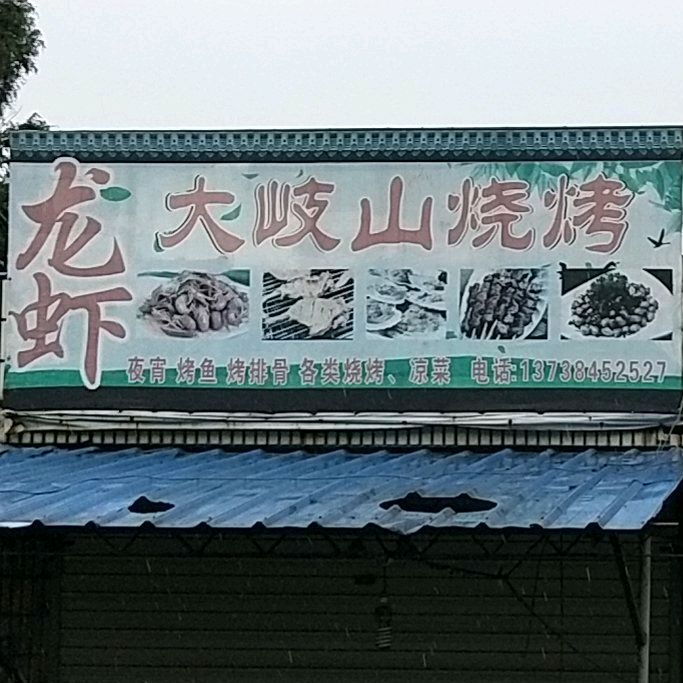 龙虾
大岐山烧烤
夜宵 烤鱼 烤排骨 各类烧烤、凉菜 电话:13738452527